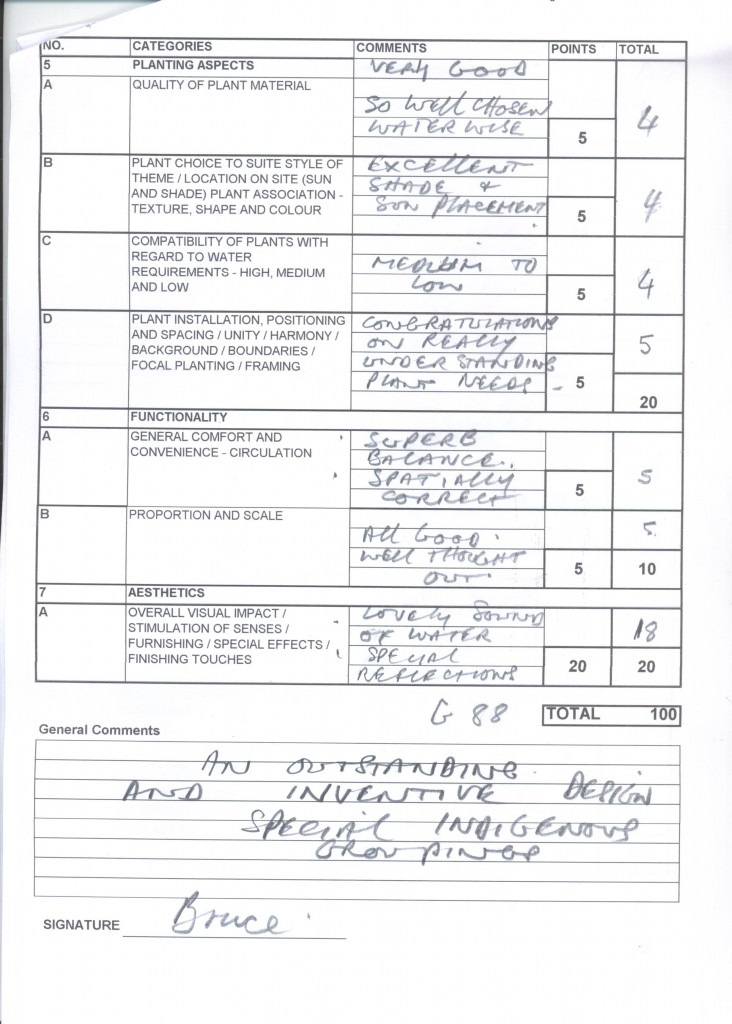 NO. CATEGORIES COMMENTS POINTS TOTAL
5 PLANTING ASPECTS VERY GOOD
A QUALITY OF PLANT MATERIAL
SO WELL CHOSEN
WATER WISE 5 4
B PLANT CHOICE TO SUITE STYLE OF EXCELLENT
THEME / LOCATION ON SITE (SUN SHADE &
AND SHADE) PLANT ASSOCIATION - SUN PLACEMENT
TEXTURE, SHAPE AND COLOUR 5 4
C COMPATIBILITY OF PLANTS WITH
REGARD TO WATER MEDIUM TO
REQUIREMENTS - HIGH, MEDIUM LOW
AND LOW 5 4
D PLANT INSTALLATION, POSITIONING CONGRATULATIONS
AND SPACING / UNITY / HARMONY / ON REALLY 5
BACKGROUND / BOUNDARIES / UNDERSTANDING
FOCAL PLANTING / FRAMING PLANT NEEDS 5
20
6 FUNCTIONALITY
A GENERAL COMFORT AND SUPERB
CONVENIENCE - CIRCULATION BALANCE.
SPATIALLY 5
CORRECT 5
B PROPORTION AND SCALE 5
ALL GOOD.
WELL THOUGHT
OUT. 5 10
7 AESTHETICS
A OVERALL VISUAL IMPACT / LOVELY SOUND
STIMULATION OF SENSES / OF WATER 18
FURNISHING / SPECIAL EFFECTS / SPECIAL
FINISHING TOUCHES REFLECTIONS 20 20
G 88 TOTAL 100
General Comments
AN OUTSTANDING
AND INVENTIVE DESIGN
SPECIAL INDIGENOUS
GROUPINGS
SIGNATURE Bruce